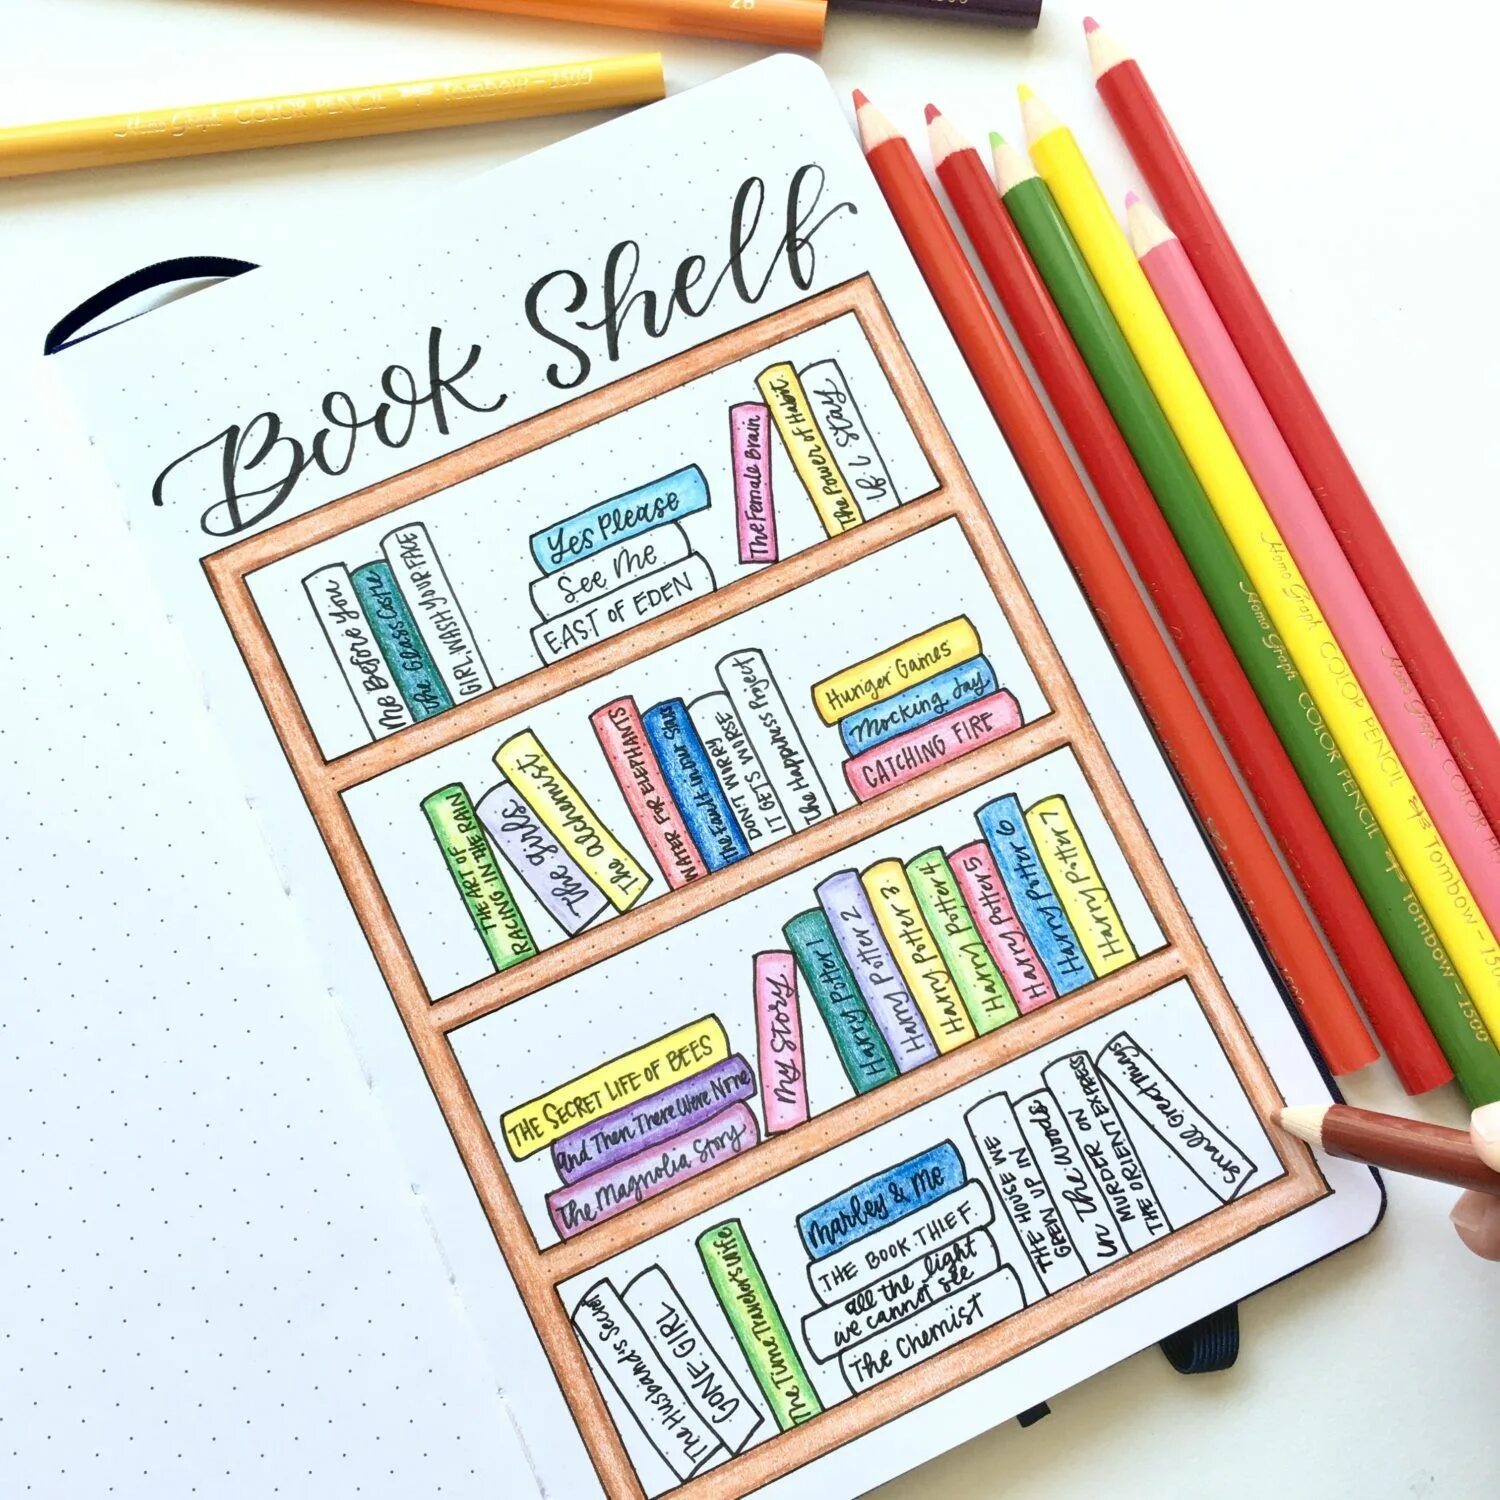 28
1500
Homo Graph COLOR PENCIL Tombow-1500
Book Shelf
Me Before You
The Glass Castle
GIRL, WASH YOUR FACE
Yes Please
See Me
EAST OF EDEN
The Female Brain
The Power of Habit
If I Stay
THE ART OF
RACING IN THE RAIN
The girls
The alchemist
WATER FOR ELEPHANTS
The Fault in our Stars
DON'T WORRY
IT GETS WORSE
The Happiness Project
Hunger Games
Mocking Jay
CATCHING FIRE
THE SECRET LIFE OF BEES
And Then There Were None
The Magnolia Story
My Story
Harry Potter 1
Harry Potter 2
Harry Potter 3
Harry Potter 4
Harry Potter 5
Harry Potter 6
Harry Potter 7
The Husband's Secret
GONE GIRL
The Time Traveler's Wife
Marley & Me
THE BOOK THIEF
all the light
we cannot see
The Chemist
THE HOUSE WE
GREW UP IN
In The Woods
MURDER ON
THE ORIENT EXPRESS
Small Great Things
Homo Graph COLOR PENCIL Tombow-150
Homo Graph COLOR PENCIL Tombow-1500
Homo Graph COLOR PE
1500